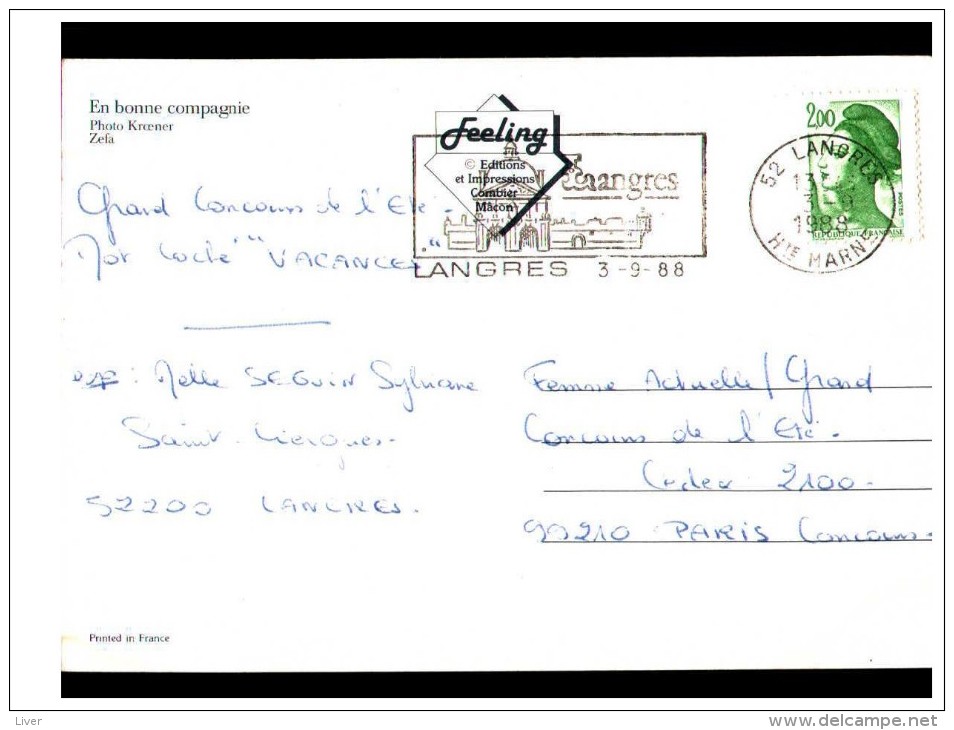 En bonne compagnie
Photo Krœner
Zefa
Feeling
© Editions
et Impressions
Combier
Mâcon
Langres
LANGRES 3-9-88
2,00
52 LANGRES
13
3-9
1988
Hte MARNE
POSTES
REPUBLIQUE FRANÇAISE
Grand Concours de l'Eté.
Mot Codé "VACANCES"
exp: Melle SEGUIN Sylviane
Saint. Ciergues.
52200 LANGRES.
Femme Actuelle/Grand
Concours de l'Eté.
Cedex 2100.
99210 PARIS Concours.
Printed in France
Liver
www.delcampe.net